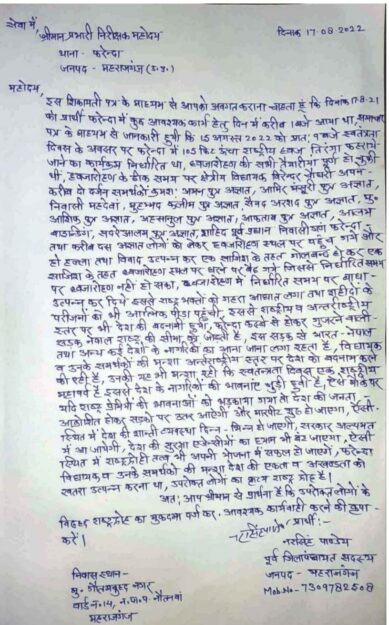 सेवा में,
श्रीमान प्रभारी निरीक्षक महोदय
दिनांक 17-08-2022
थाना - फरेन्दा
जनपद - महराजगंज (उ.प्र.)
महोदय,
इस शिकायती पत्र के माध्यम से आपको अवगत कराना चाहता है कि दिनांक 17-8-21
को प्रार्थी फरेन्दा में कुछ आवश्यक कार्य हेतु दिन में करीब 1 बजे आया था, समाचार
पत्र के माध्यम से जानकारी हुयी कि 15 अगस्त 2022 को प्रातः 9 बजे स्वतंत्रता
दिवस के अवसर पर फरेन्दा में 105 फिट ऊंचा राष्ट्रीय ध्वज तिरंगा फहराये
जाने का कार्यक्रम निर्धारित था, ध्वजारोहण की सभी तैयारियां पूर्ण हो चुकी
थी, ध्वजारोहण के ठीक समय पर क्षेत्रीय विधायक विरेन्द्र चौधरी अपने
करीब दो दर्जन समर्थकों क्रमशः अमन पुत्र अज्ञात, आमिर मंसूरी पुत्र अज्ञात,
निवासी महदेवा, मुहम्मद कलीम पुत्र अज्ञात, सैयद अरशद पुत्र अज्ञात, मु०
आशिक पुत्र अज्ञात, अहसानुल पुत्र अज्ञात, आफताब पुत्र अज्ञात, आलम
सदरे आलम पुत्र अज्ञात, शाहिद पूर्व प्रधान निवासी गण फरेन्दा
तथा करीब दस अज्ञात लोगों को लेकर ध्वजारोहण स्थल पर पहुंच गये और
हो हल्ला तथा विवाद उत्पन्न कर एक साजिश के तहत गोलबन्द हो कर एक
साजिश के तहत ध्वजारोहण स्थल पर धरने पर बैठ गये जिससे निर्धारित समय
पर ध्वजारोहण नही हो सका, ध्वजारोहण में निर्धारित समय पर बाधा
उत्पन्न कर दिये इससे राष्ट्र भक्तों को गहरा आघात लगा तथा शहीदों के
परिजनों को भी आत्मिक पीड़ा पहुंची, इससे राष्ट्रीय व अन्तर्राष्ट्रीय
स्तर पर भी देश की बदनामी हुयी, फरेन्दा कस्बे से होकर गुजरने वाली
सड़क नेपाल राष्ट्र की सीमा को जोड़ती है। इस सड़क से भारत-नेपाल
तथा अन्य कई देशों के नागरिकों का आना जाना लगा रहता है, विधायक
व उनके समर्थकों की मन्शा अन्तर्राष्ट्रीय स्तर पर देश को बदनाम करने
की रही है, उनकी यह भी मन्शा रही कि स्वतन्त्रता दिवस एक राष्ट्रीय
महापर्व है इससे देश के नागरिकों की भावनाएं जुड़ी हुयी है, ऐसे मौके पर
यदि राष्ट्र प्रेमियों की भावनाओं को भड़काया गया तो देश की जनता
आक्रोशित होकर सड़कों पर उतर आएगी और मारपीट शुरू हो जाएगा, ऐसी
स्थिति में देश की शान्ती व्यवस्था छिन्न-भिन्न हो जाएगी, सरकार अल्पमत
में आ जायेगी, देश की सुरक्षा एजेन्सीयों का ध्यान भी बंट जाएगा, ऐसी
स्थिति में राष्ट्रद्रोही तत्व भी अपनी योजना में सफल हो जाएंगे, फरेन्दा
विधायक व उनके समर्थकों की मन्शा देश की एकता व अखण्डता को
खतरा उत्पन्न करना था, उपरोक्त लोगों का कृत्य राष्ट्र द्रोह है।
अतः आप श्रीमान से प्रार्थना है कि उपरोक्त लोगों के
विरुद्ध राष्ट्रद्रोह का मुकदमा दर्ज कर आवश्यक कार्यवाही करने की कृपा
करें।
प्रार्थी:-
नरसिंह पाण्डेय
पूर्व जिला पंचायत सदस्य
जनपद - महराजगंज
Mob.No- 7309782508
निवास स्थान -
मु० गौतमबुद्ध नगर
वार्ड नं०14, न.पा.प. नौतनवां
महराजगंज